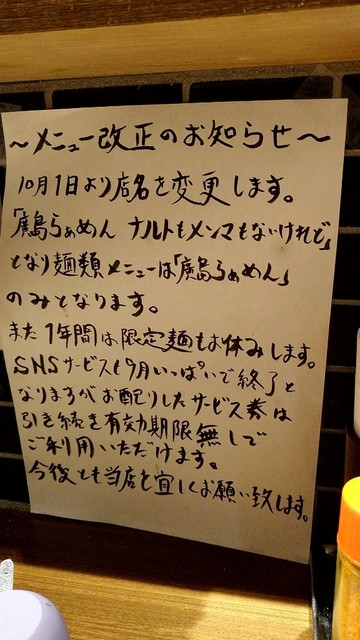 ～メニュー改正のお知らせ～
10月1日より店名を変更します。
「廣島らぁめん ナルトもメンマもないけれど」
となり麺類メニューは「廣島らぁめん」
のみとなります。
また1年間は限定麺もお休みします。
SNSサービスも9月いっぱいで終了と
なりますがお配りしたサービス券は
引き続き有効期限無しで
ご利用いただけます。
今後とも当店を宜しくお願い致します。